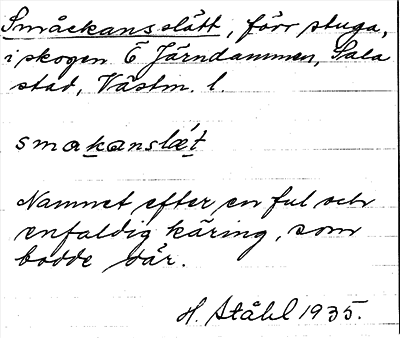 Småckansslätt, förr stuga,
i skogen Ö Järndammen, Sala
stad, Västm. l.
smakanslǽt
Namnet efter en ful och
enfaldig käring, som
bodde där.
H. Ståhl 1935.